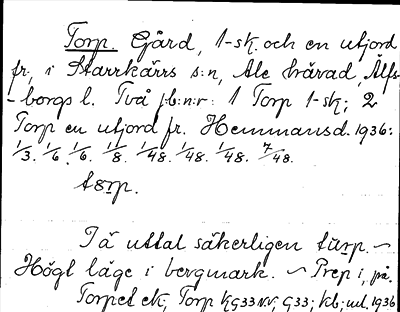 Torp. Gård, 1-sk. och en utjord
fr, i Starrkärrs s:n, Ale härad, Älfs-
-borgs l. Två jb:n:r: 1 Torp 1-sk; 2
Torp en utjord fr. Hemmansd. 1936:
1/3. 1/6. 1/6. 11/8. 1/48. 1/48. 1/48. 7/48.
tørp.
Tä uttal säkerligen tùrp. ~
Högt läge i bergmark. ~ Prep i, på.
Torpet ek, Torp kg33 NV, G33; kb; ud. 1936